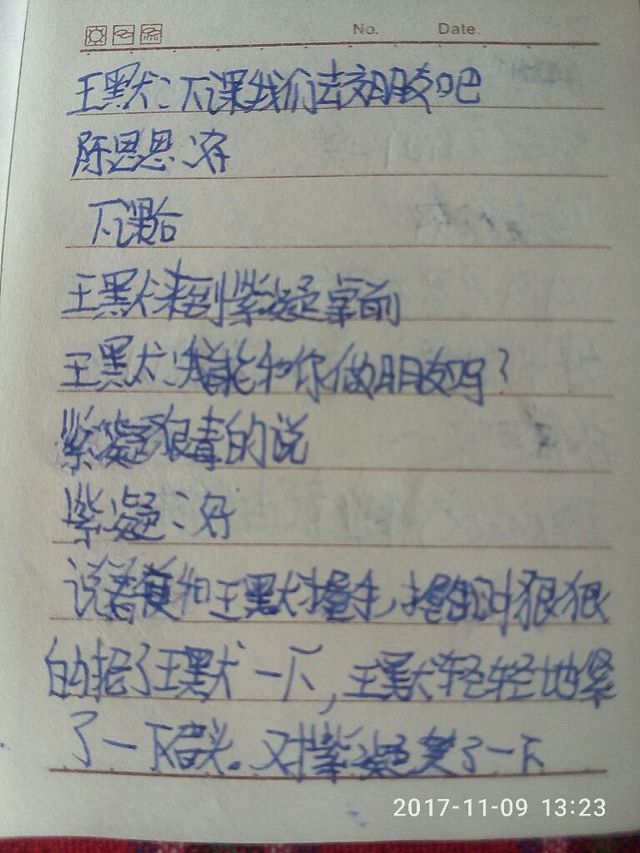 No. Date.
王默：下课我们去交朋友吧
陈思思：好
下课后
王默来到紫凝桌前
王默：我能和你做朋友吗？
紫凝狠毒的说
紫凝：好
说着便和王默握手，握手时狠狠
的掐了王默一下，王默轻轻地紧
了一下眉头。又对紫凝笑了一下
2017-11-09 13:23